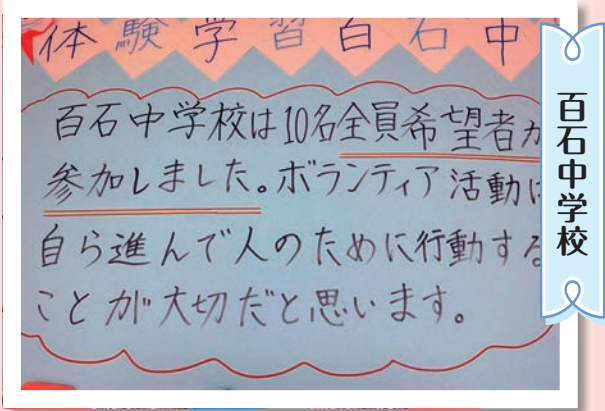 体験学習百石中
百石中学校は10名全員希望者が
参加しました。ボランティア活動は
自ら進んで人のために行動する
ことが大切だと思います。
百石中学校